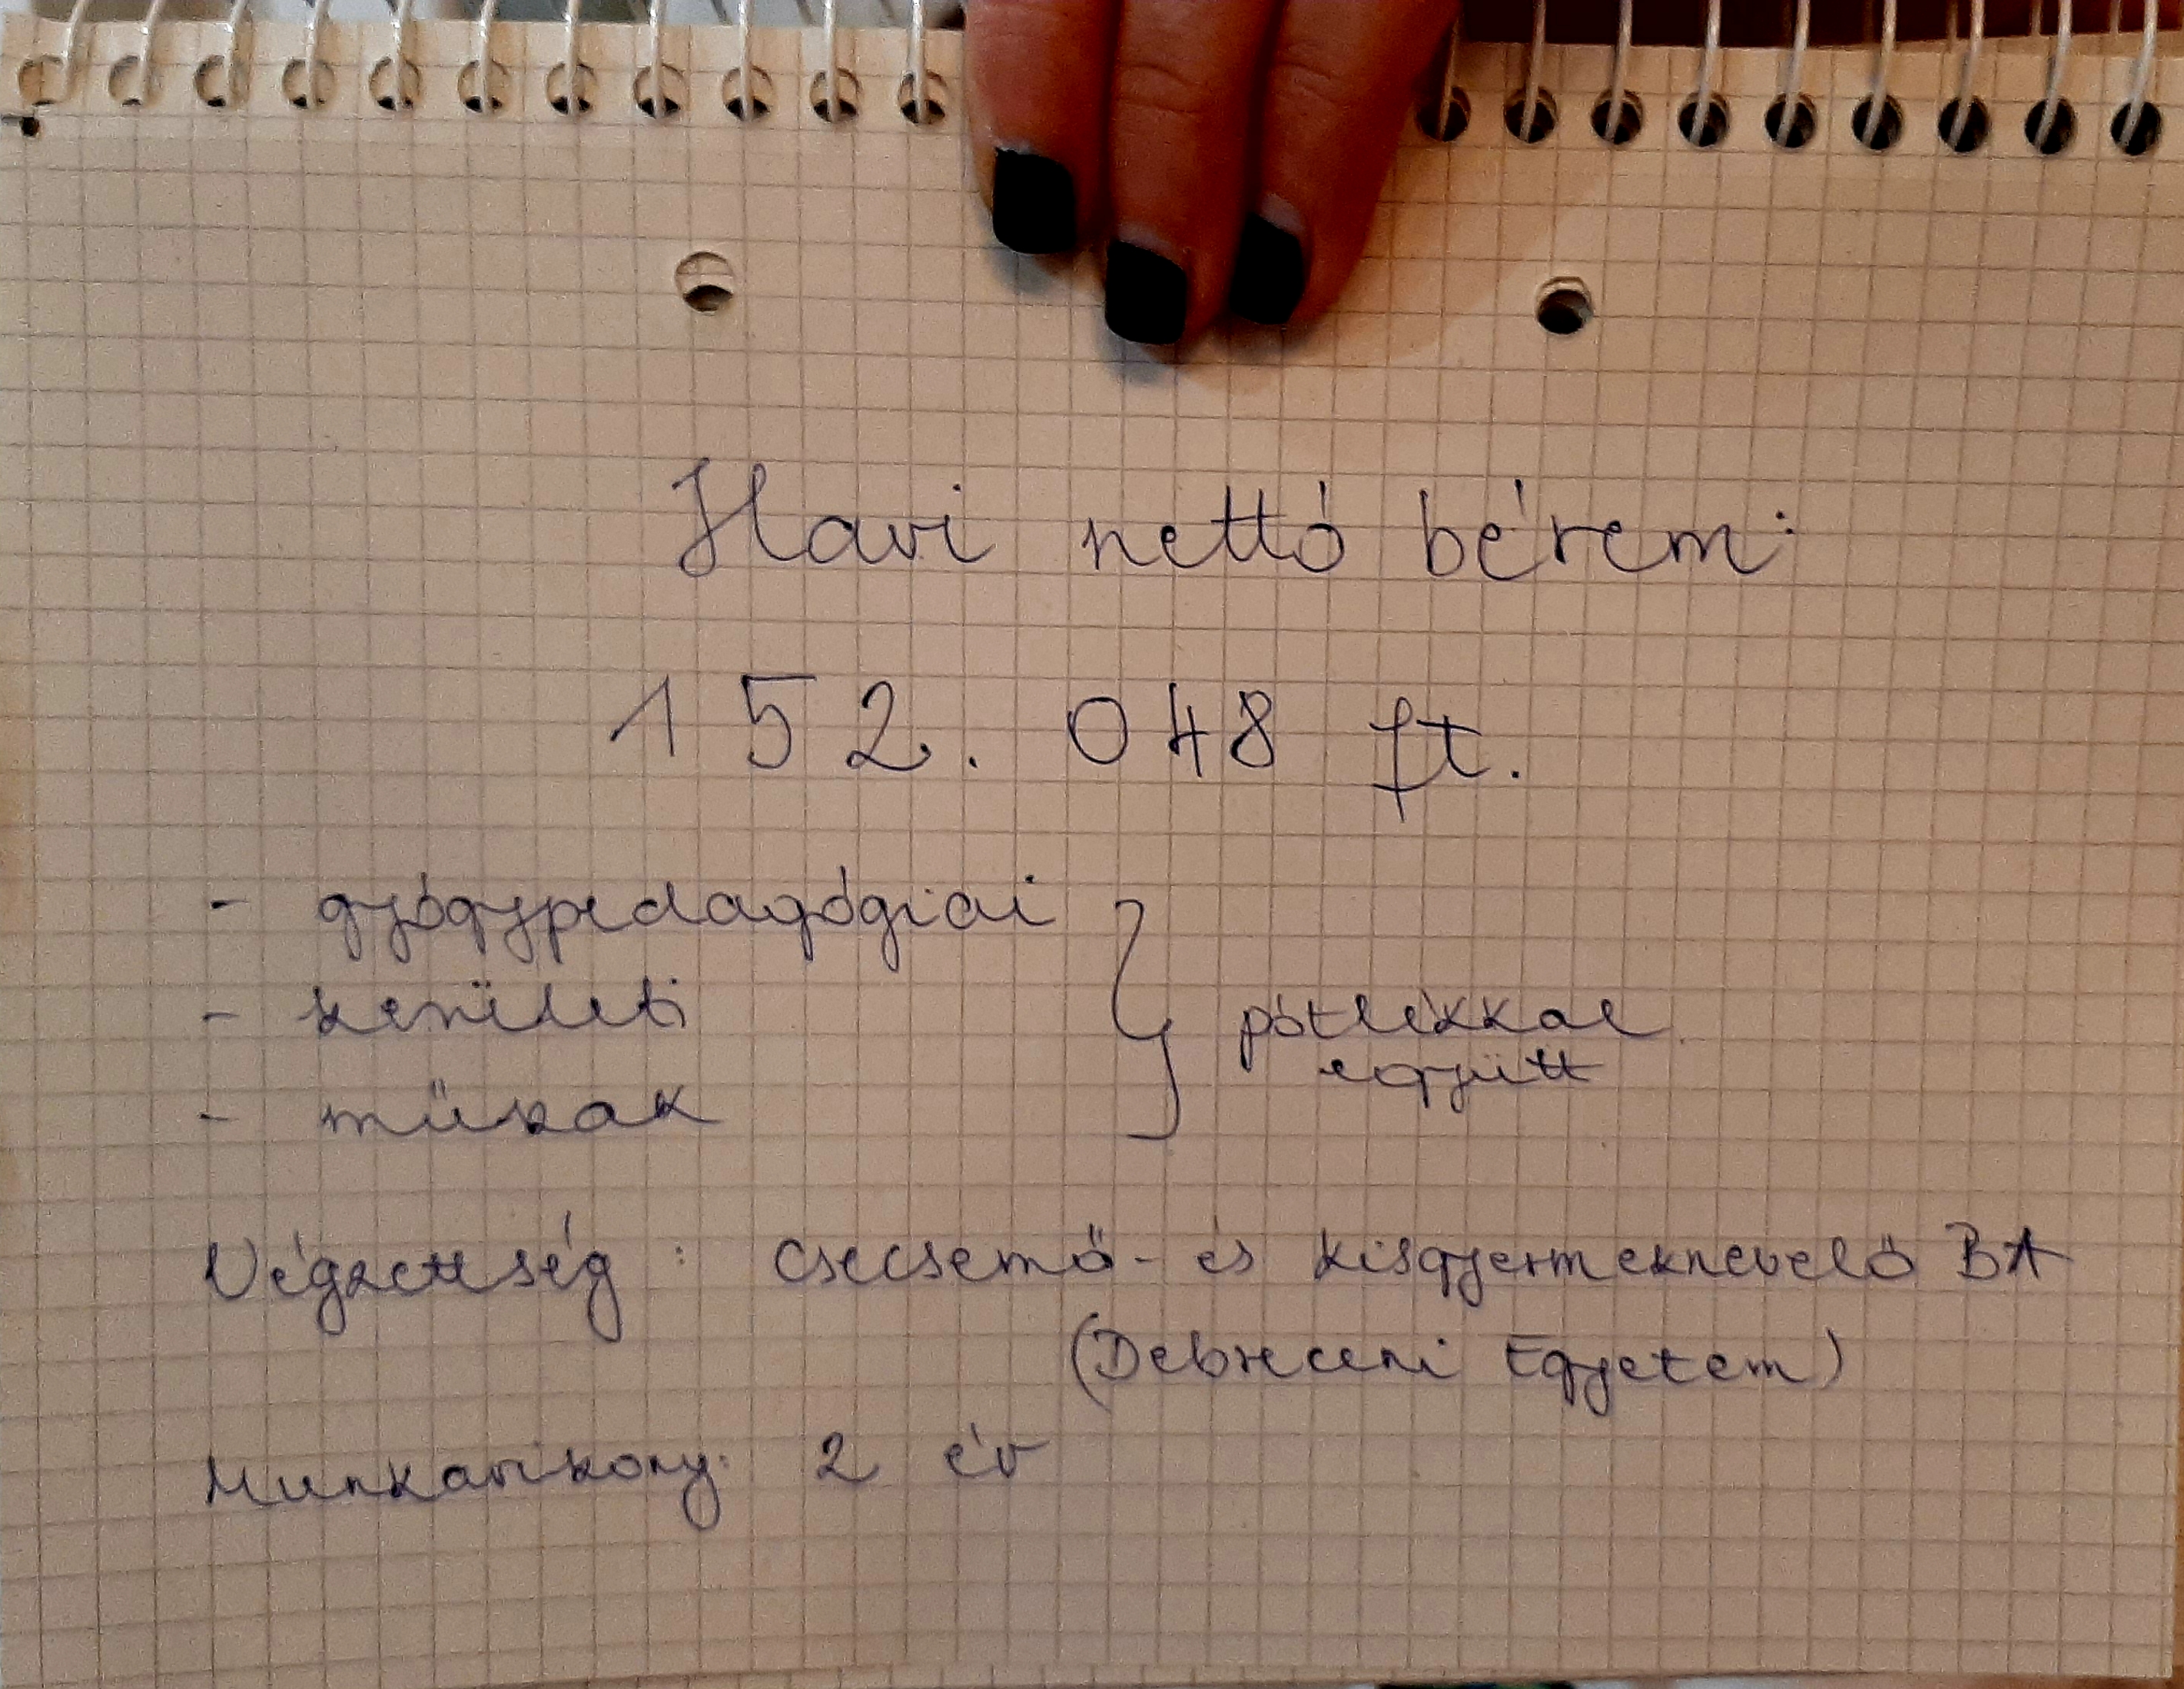 Havi nettó bérem:
152.048 ft.
- gyógypedagógiai
- kerületi
- műszak
} pótlékkal
együtt
Végzettség: Csecsemő- és kisgyermeknevelő BA
(Debreceni Egyetem)
Munkaviszony: 2 év